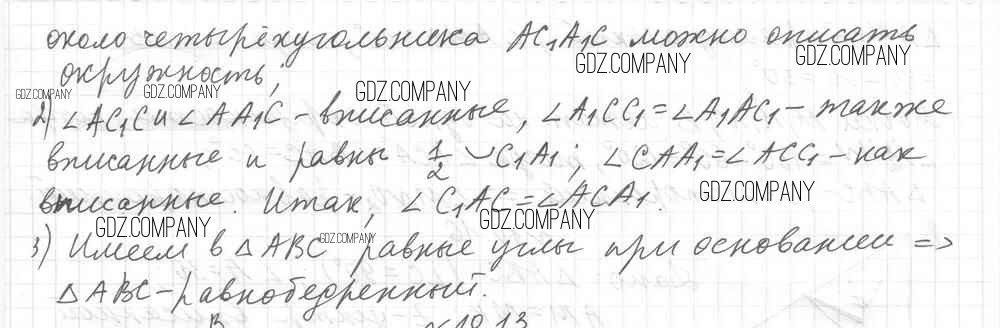 около четырёхугольника AC₁A₁C можно описать
GDZ.COMPANY GDZ.COMPANY
окружность;
GDZ.COMPANY GDZ.COMPANY GDZ.COMPANY
2) ∠AC₁C и ∠AA₁C - вписанные, ∠A₁CC₁ = ∠A₁AC₁ - также
вписанные и равны 1/2 ◡C₁A₁; ∠CAA₁ = ∠ACC₁ - как
GDZ.COMPANY
вписанные. Итак, ∠C₁AC = ∠ACA₁.
GDZ.COMPANY GDZ.COMPANY GDZ.COMPANY
3) Имеем в △ABC равные углы при основании =>
△ABC - равнобедренный.